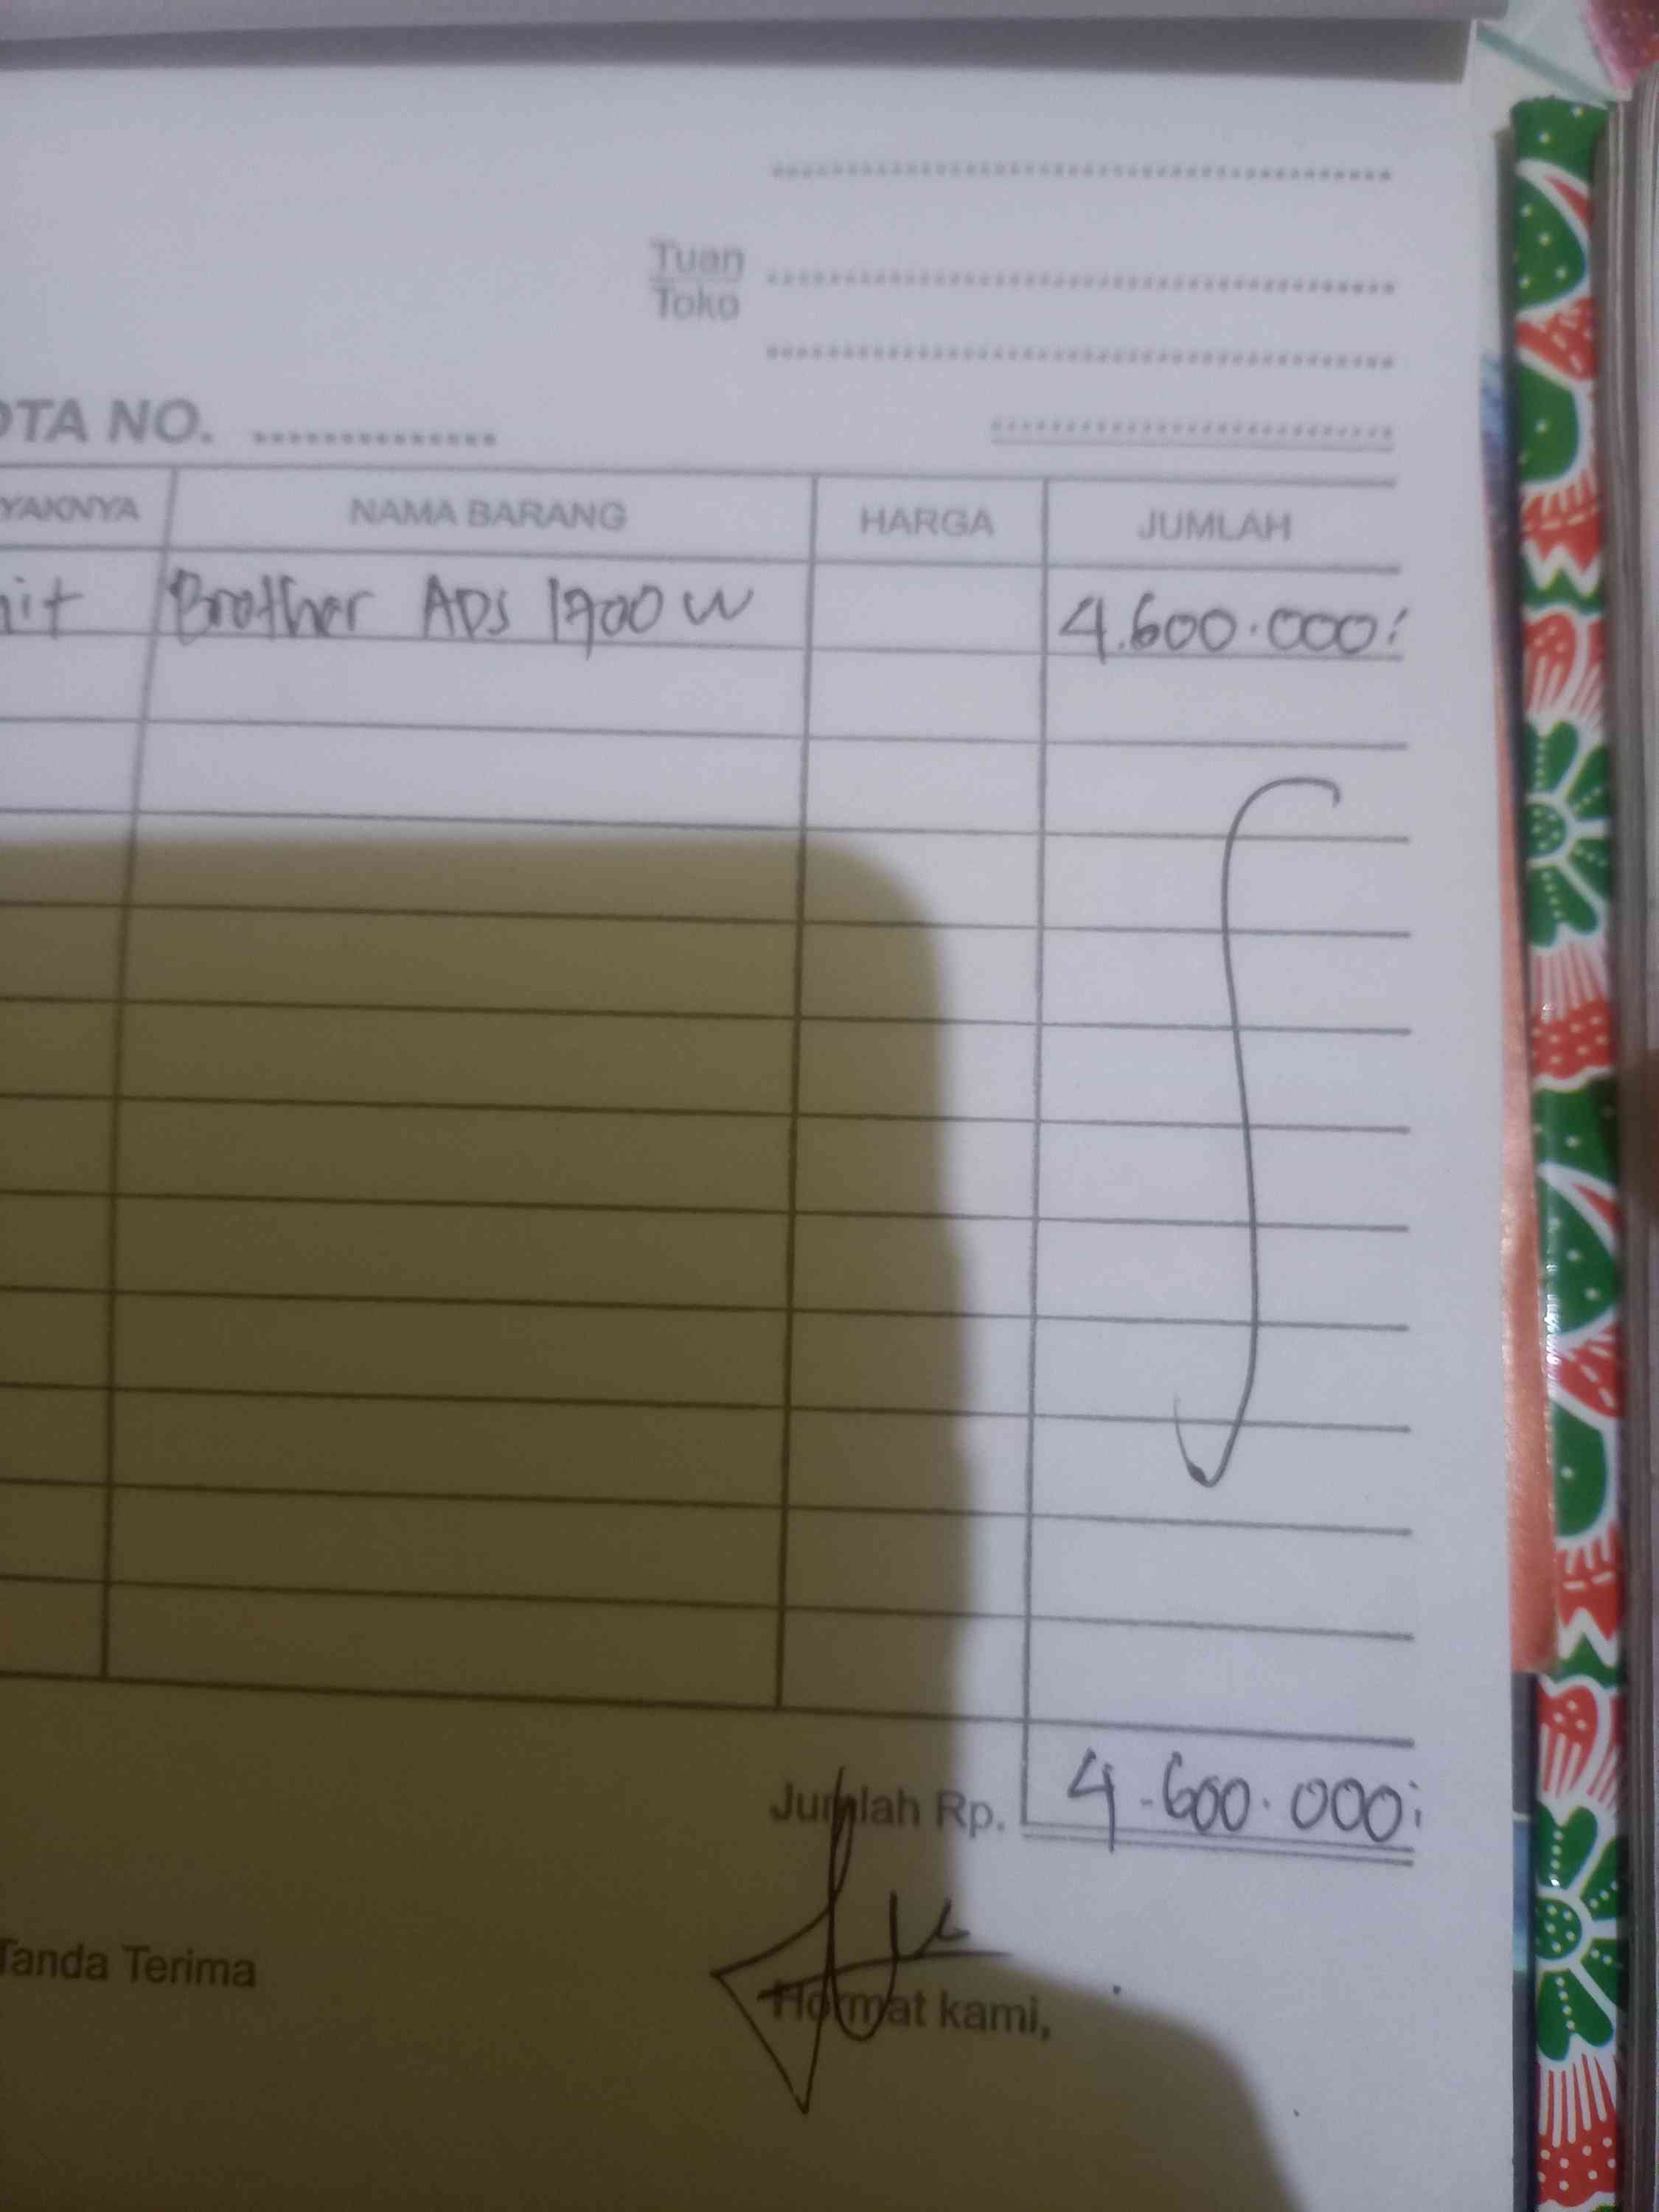 Tuan
Toko
OTA NO. ..............
YAKNYA NAMA BARANG HARGA JUMLAH
nit Brother ADS 1700 W 4.600.000,-
Jumlah Rp. 4.600.000,-
Tanda Terima Hormat kami,